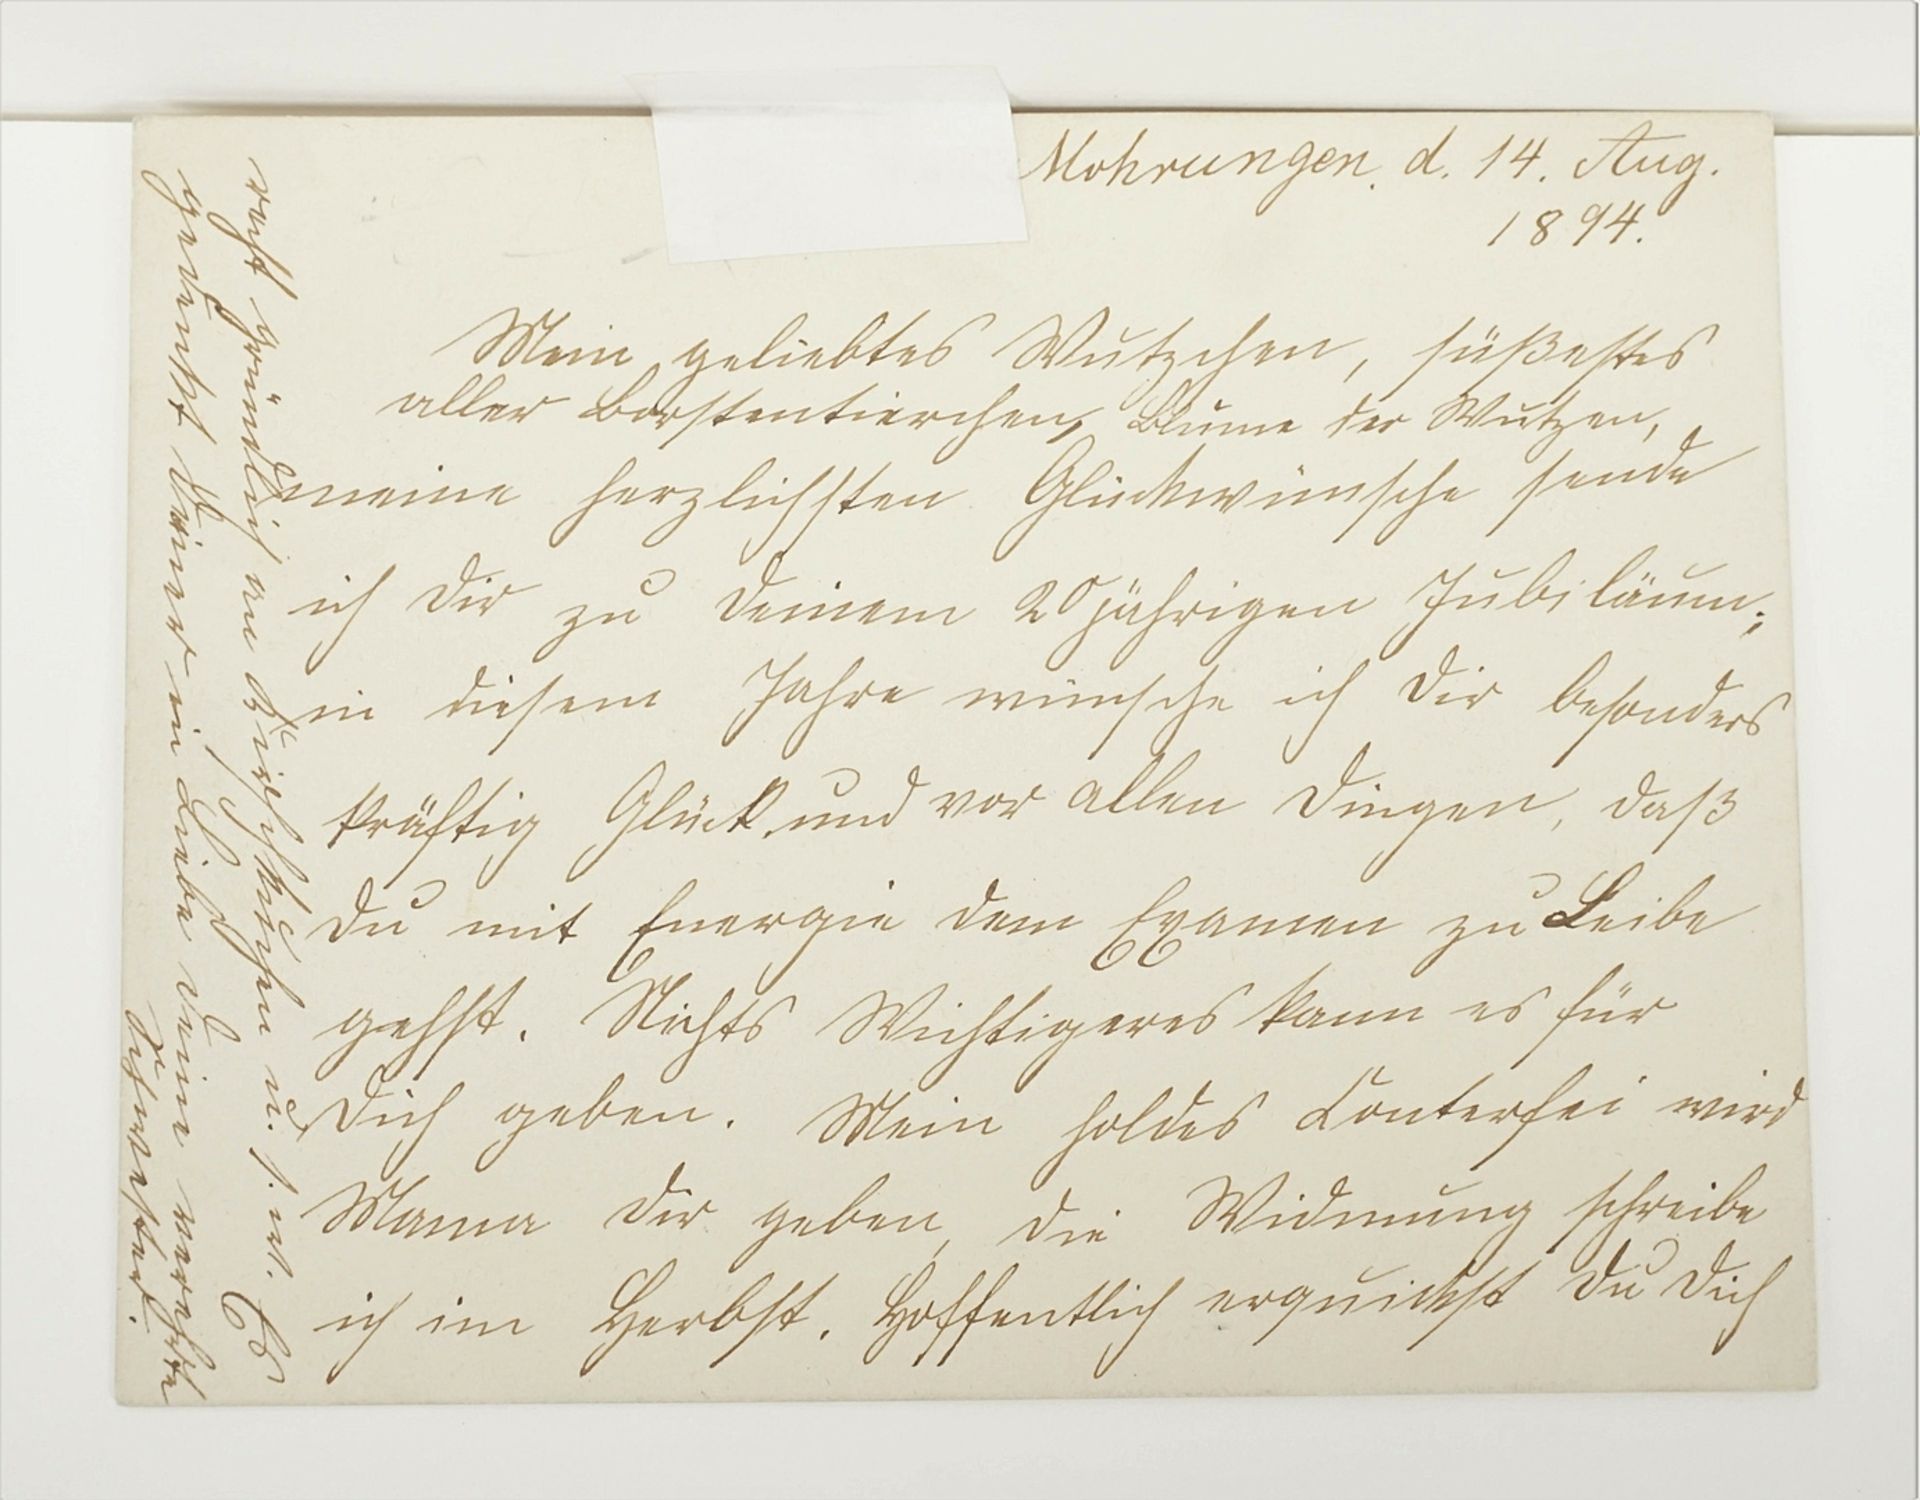 Mohrungen. d. 14. Aug.
1894.
Mein geliebtes Wutzchen, süßestes
aller Borstentierchen, Blume der Wutzen,
meine herzlichsten Glückwünsche sende
ich Dir zu Deinem 20jährigen Jubiläum;
in diesem Jahre wünsche ich Dir besonders
kräftig Glück und vor allen Dingen, daß
Du mit Energie dem Examen zu Leibe
gehst. Nichts Wichtigeres kann es für
Dich geben. Mein holdes Conterfei wird
Mama Dir geben, die Widmung schreibe
ich im Herbst. Hoffentlich erquickst Du Dich
recht gründlich an Kirschkuchen u. s. w. Es
gedenkt Deiner in Liebe Deine
Schwester.